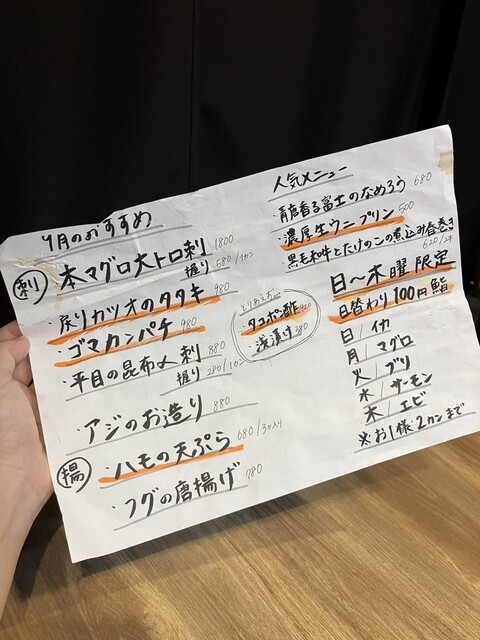 9月のおすすめ
刺
本マグロ大トロ刺 1800
握り 580/1カン
・戻りカツオのタタキ 980
・ゴマカンパチ 980
・平目の昆布〆刺 880
握り 280/1カン
・アジのお造り 880
揚
・ハモの天ぷら 680/3ケ入り
・フグの唐揚げ 780
とりあえずに
・タコポン酢 420
・浅漬け 380
人気メニュー
・青唐香る富士のなめろう 680
・濃厚生ウニプリン 500
・黒毛和牛とたけのこの煮込み春巻き
620/2本
日〜木曜限定
日替わり100円鮨
日/イカ
月/マグロ
火/ブリ
水/サーモン
木/エビ
※お1様2カンまで